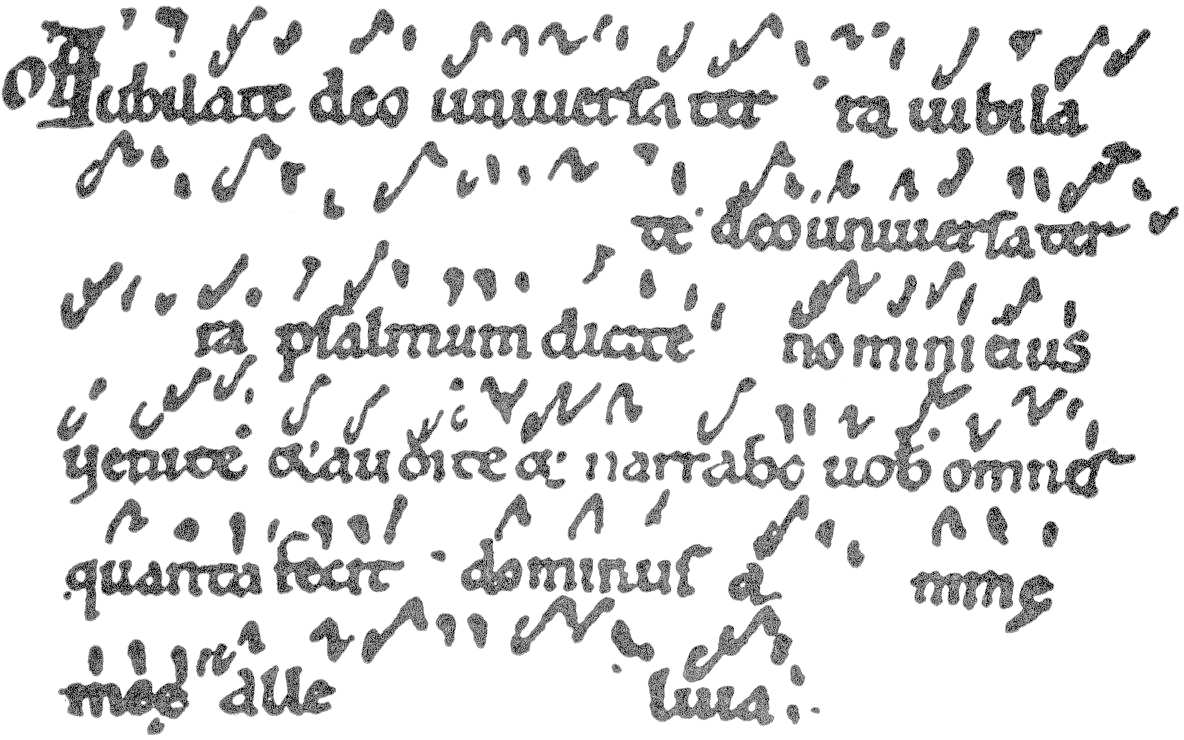 O Iubilate deo uniuersa ter ra iubila
te deo uniuersa ter
ra psalmum dicite nomini eius
uenite & audite & narrabo uob omnia
quanta fecit dominus a nime
meę alle luia.